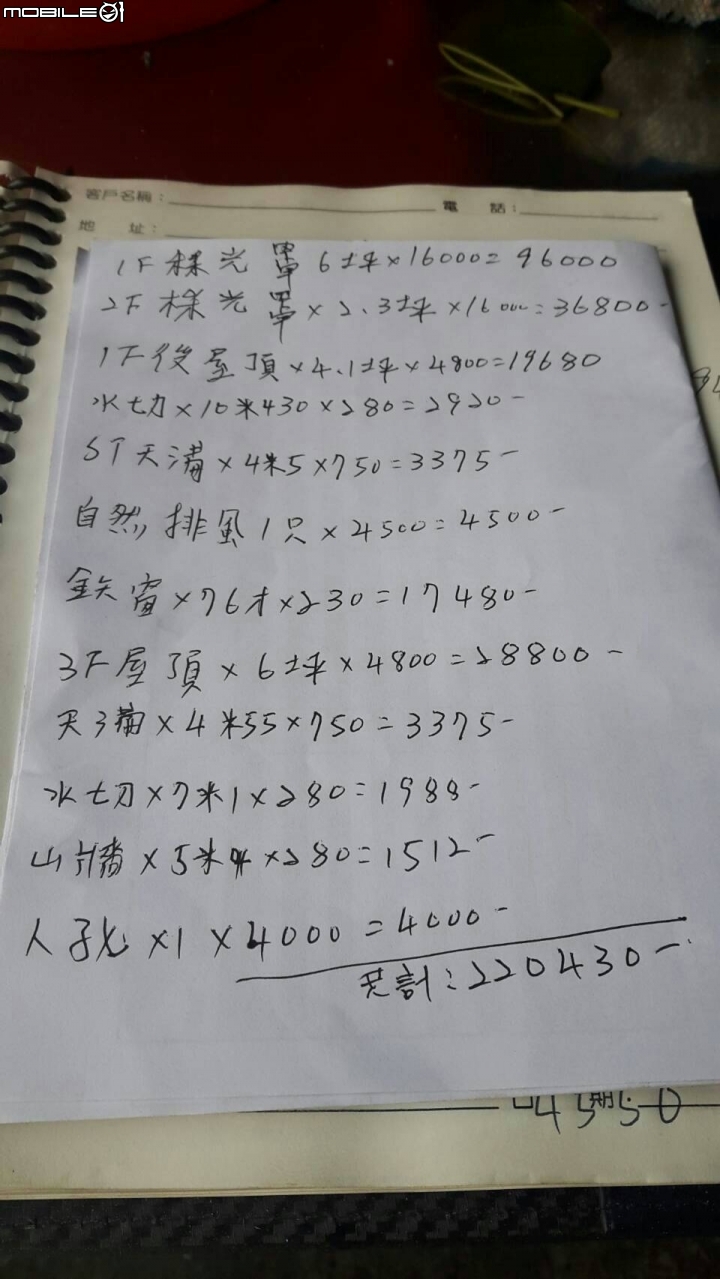 MOBILE01
客戶名稱：
電 話：
地 址：
1F 採光罩 6坪×16000=96000
2F 採光罩×2.3坪×16000=36800-
1F後屋頂×4.1坪×4800=19680
水切×10米430×280=2920-
ST天溝×4米5×750=3375-
自然排風1只×4500=4500-
鉄窗×76才×230=17480-
3F屋頂×6坪×4800=28800-
天溝×4米55×750=3375-
水切×7米1×280=1988-
山牆×5米4×280=1512-
人孔×1×4000=4000-
共計：220430-
期